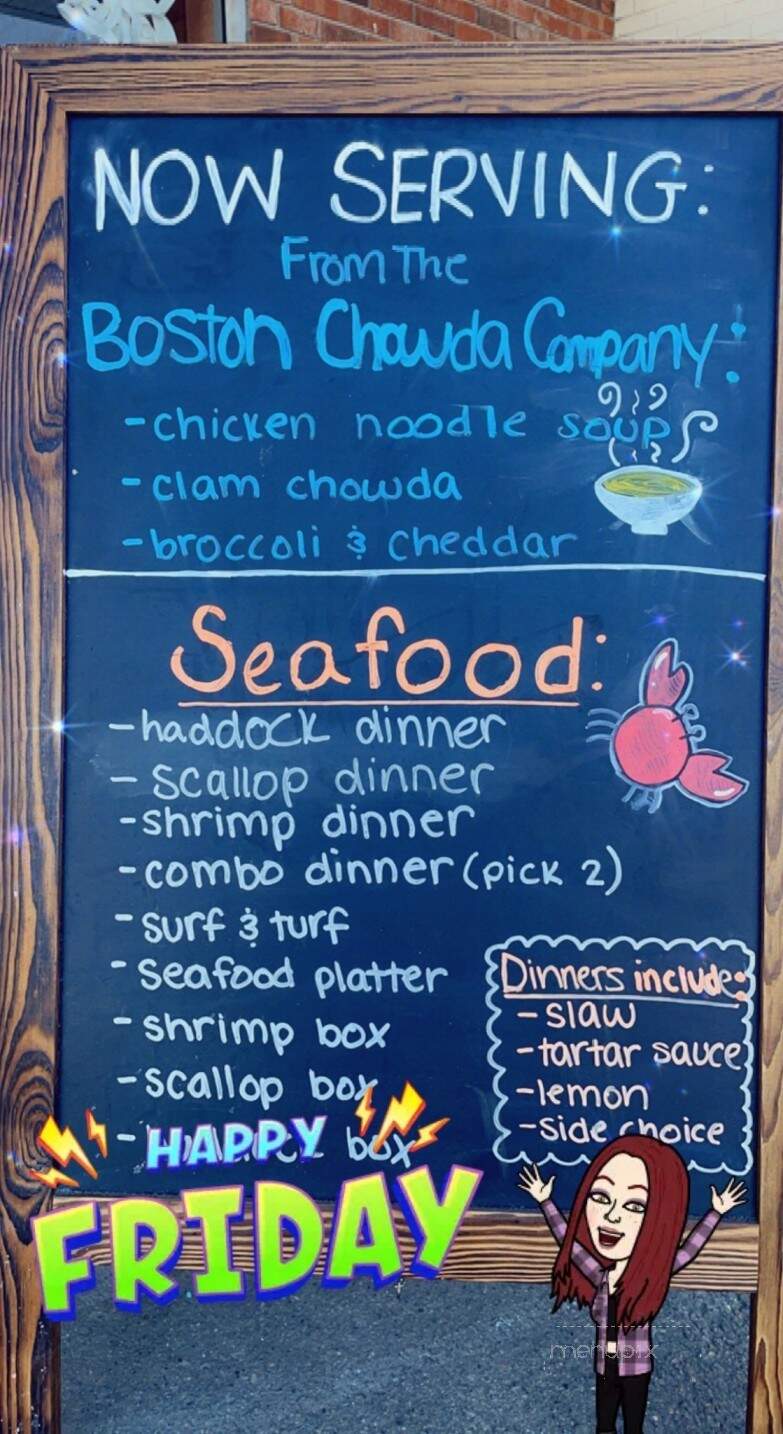 NOW SERVING:
From The
Boston Chowda Company:
- chicken noodle soup
- clam chowda
- broccoli & cheddar
Seafood:
- haddock dinner
- scallop dinner
- shrimp dinner
- combo dinner (pick 2)
- surf & turf
- seafood platter
- shrimp box
- scallop box
- box
Dinners include:
- slaw
- tartar sauce
- lemon
- side choice
HAPPY
FRIDAY
menupix